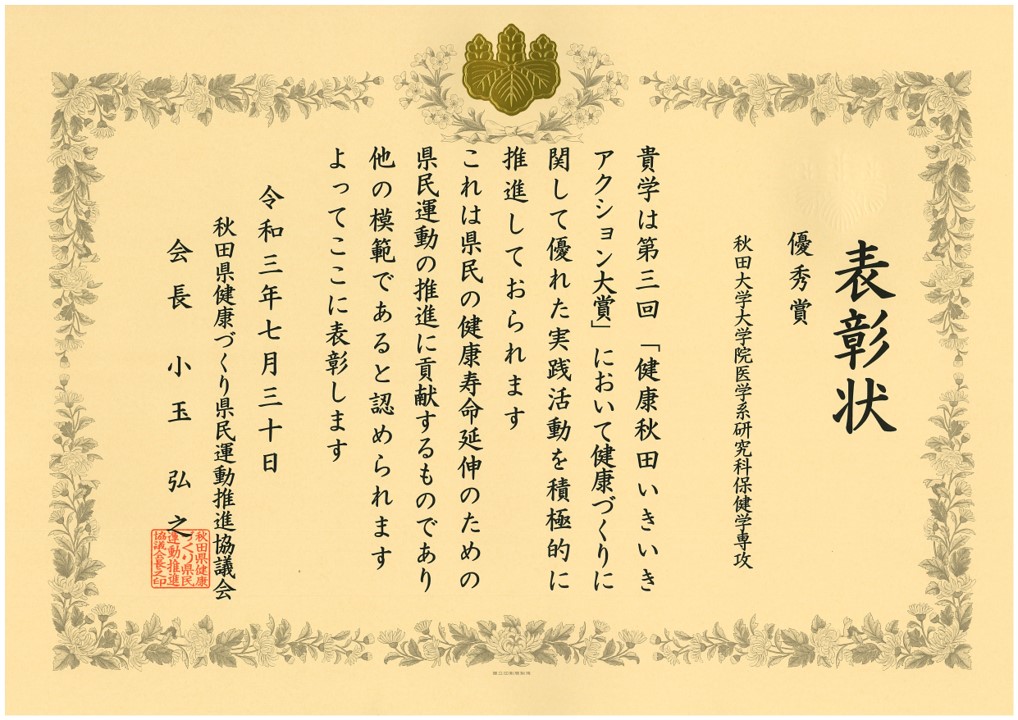 表彰状
優秀賞
秋田大学大学院医学系研究科保健学専攻
貴学は第三回「健康秋田いきいき
アクション大賞」において健康づくりに
関して優れた実践活動を積極的に
推進しておられます
これは県民の健康寿命延伸のための
県民運動の推進に貢献するものであり
他の模範であると認められます
よってここに表彰します
令和三年七月三十日
秋田県健康づくり県民運動推進協議会
会長 小玉弘之
秋田県健康
づくり県民
運動推進
協議会長之印